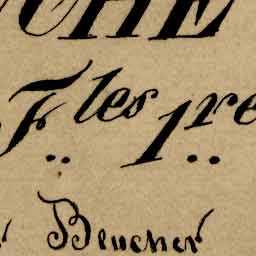 CHE
F..les 1..re
Beucher